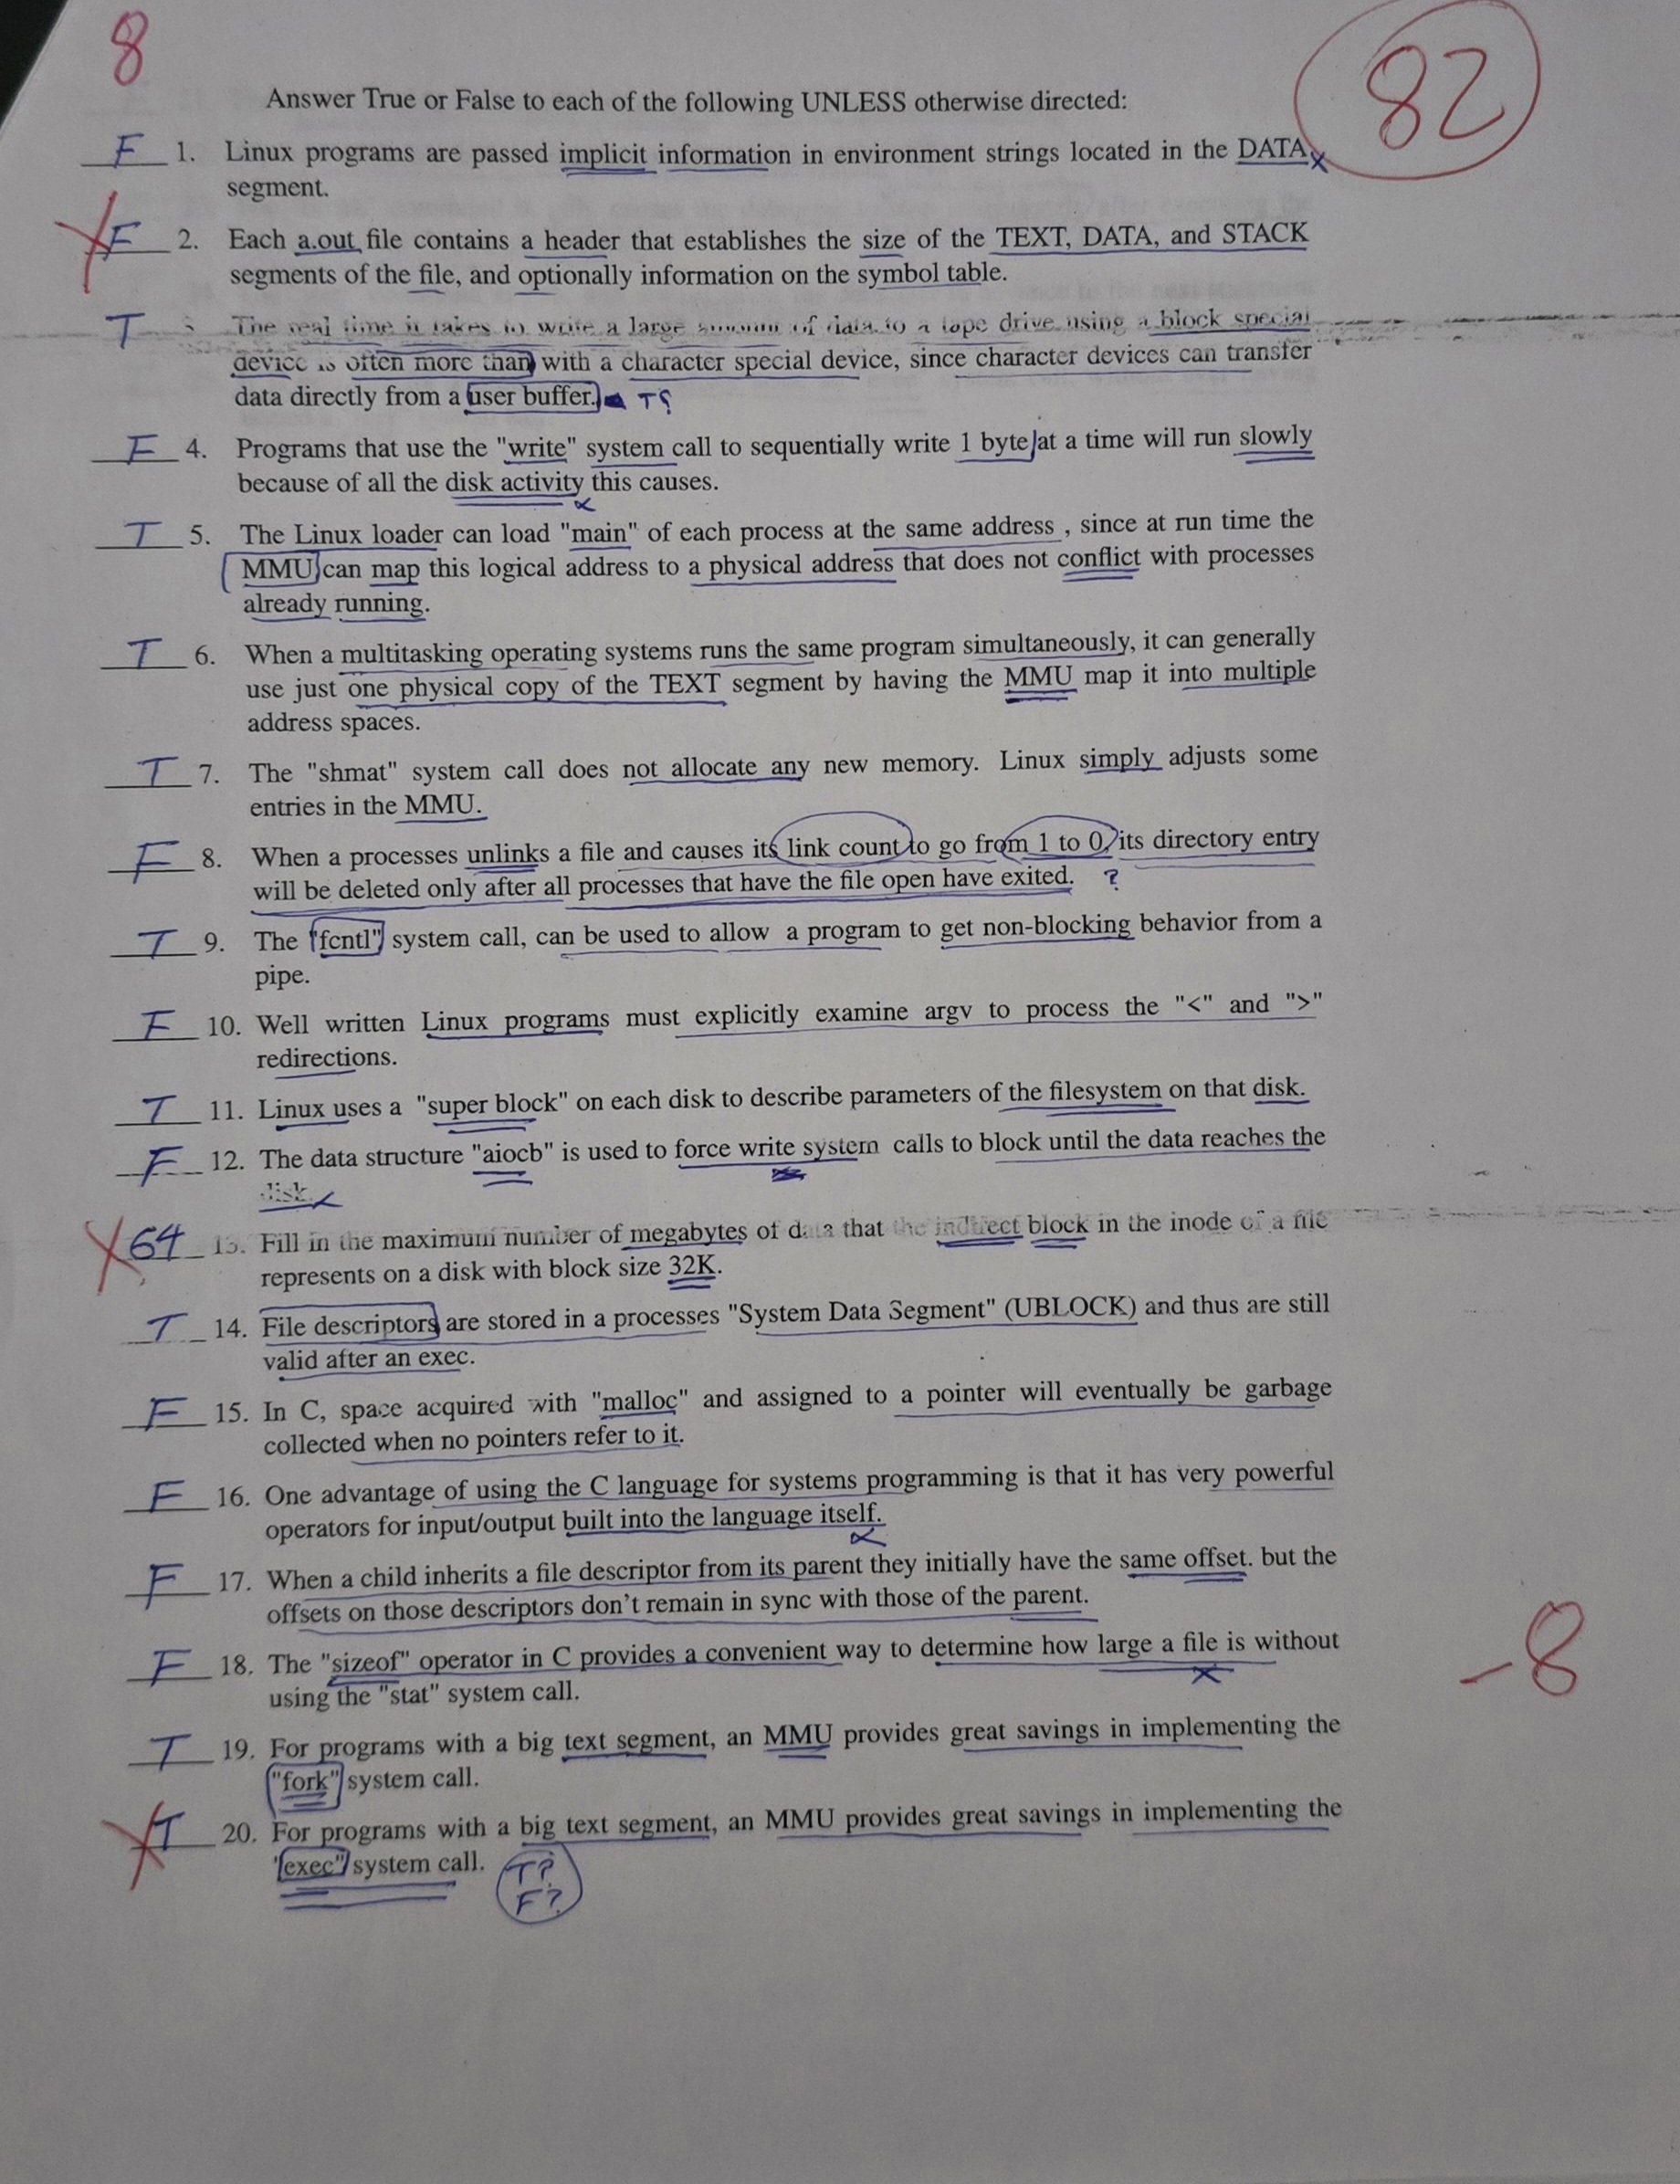 8
82
Answer True or False to each of the following UNLESS otherwise directed:
F 1. Linux programs are passed implicit information in environment strings located in the DATA x
segment.
F 2. Each a.out file contains a header that establishes the size of the TEXT, DATA, and STACK
segments of the file, and optionally information on the symbol table.
T The real time it takes to write a large amount of data to a tape drive using a block special
device is often more than with a character special device, since character devices can transfer
data directly from a user buffer. T?
F 4. Programs that use the "write" system call to sequentially write 1 byte at a time will run slowly
because of all the disk activity this causes.
x
T 5. The Linux loader can load "main" of each process at the same address , since at run time the
MMU can map this logical address to a physical address that does not conflict with processes
already running.
T 6. When a multitasking operating systems runs the same program simultaneously, it can generally
use just one physical copy of the TEXT segment by having the MMU map it into multiple
address spaces.
T 7. The "shmat" system call does not allocate any new memory. Linux simply adjusts some
entries in the MMU.
F 8. When a processes unlinks a file and causes its link count to go from 1 to 0, its directory entry
will be deleted only after all processes that have the file open have exited. ?
T 9. The "fcntl" system call, can be used to allow a program to get non-blocking behavior from a
pipe.
F 10. Well written Linux programs must explicitly examine argv to process the "<" and ">"
redirections.
T 11. Linux uses a "super block" on each disk to describe parameters of the filesystem on that disk.
F 12. The data structure "aiocb" is used to force write system calls to block until the data reaches the
disk. x
64 13. Fill in the maximum number of megabytes of data that the indirect block in the inode of a file
represents on a disk with block size 32K.
T 14. File descriptors are stored in a processes "System Data Segment" (UBLOCK) and thus are still
valid after an exec.
F 15. In C, space acquired with "malloc" and assigned to a pointer will eventually be garbage
collected when no pointers refer to it.
F 16. One advantage of using the C language for systems programming is that it has very powerful
operators for input/output built into the language itself.
x
F 17. When a child inherits a file descriptor from its parent they initially have the same offset. but the
offsets on those descriptors don't remain in sync with those of the parent.
F 18. The "sizeof" operator in C provides a convenient way to determine how large a file is without
x
using the "stat" system call.
-8
T 19. For programs with a big text segment, an MMU provides great savings in implementing the
"fork" system call.
T 20. For programs with a big text segment, an MMU provides great savings in implementing the
"exec" system call. T?
F?